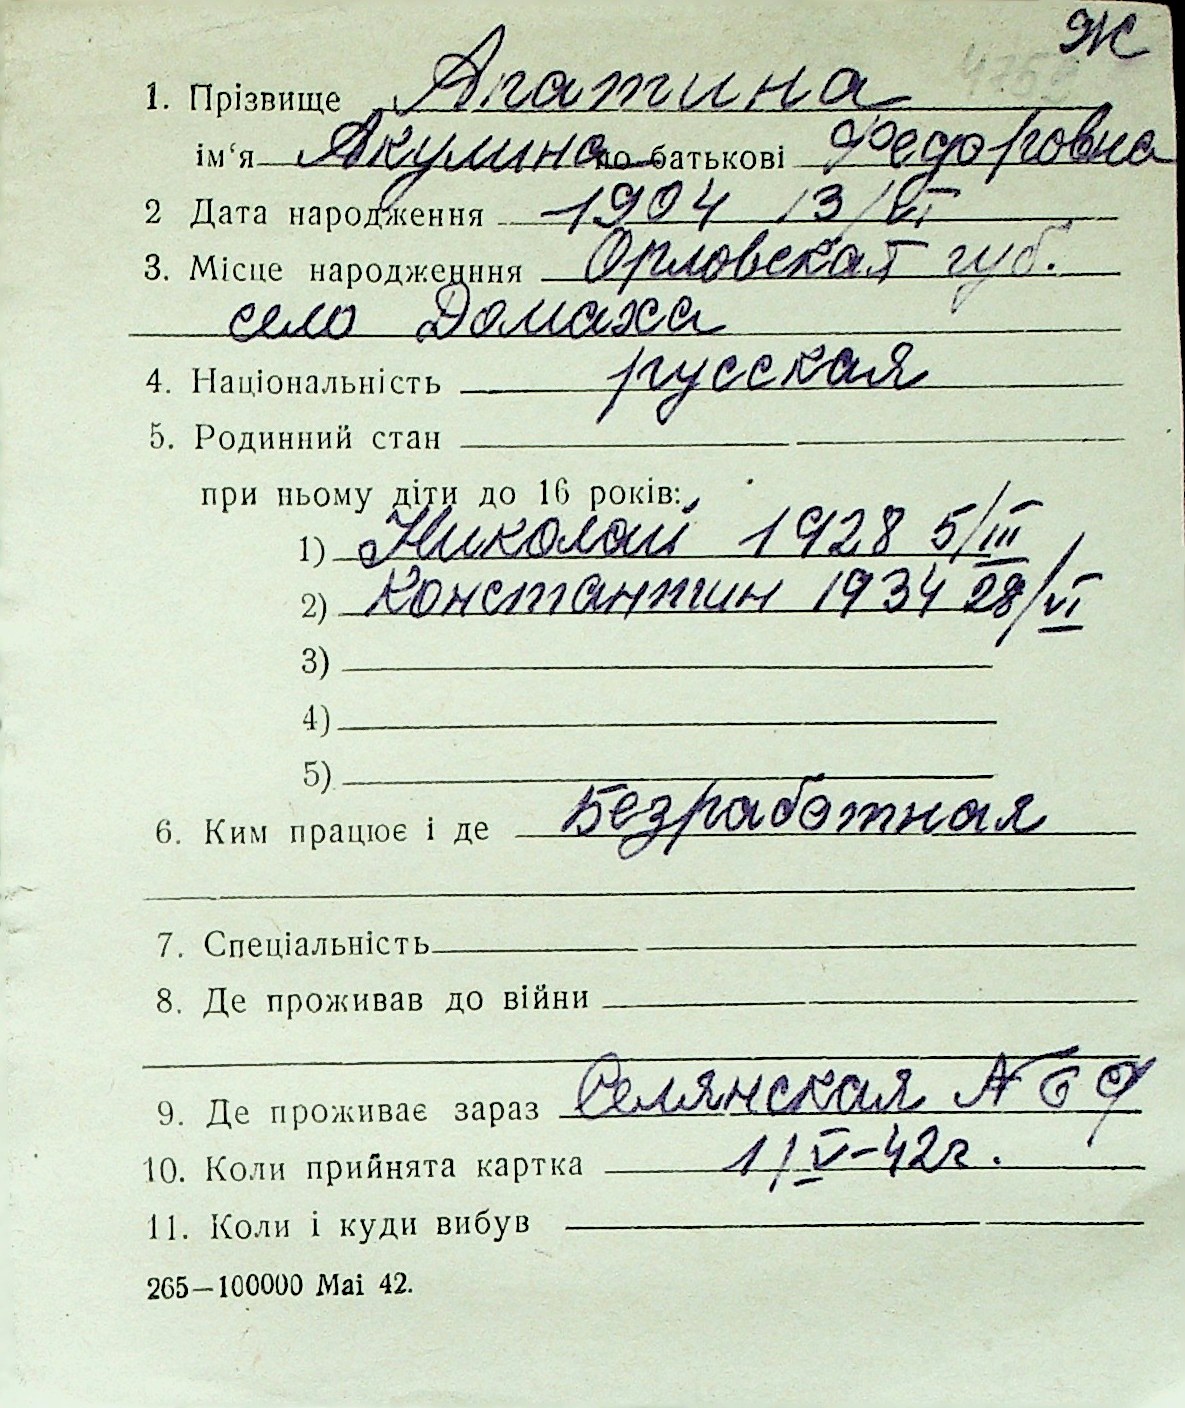 Ж
1. Прізвище Апатина
ім‘я Акулина по батькові Федоровна
2 Дата народження 1904 13/VI
3. Місце народженння Орловская губ.
село Домаха
4. Національність русская
5. Родинний стан
при ньому діти до 16 років:
1) Николай 1928 5/III
2) Константин 1934 28/VI
3)
4)
5)
6. Ким працює і де Безработная
7. Спеціальність
8. Де проживав до війни
9. Де проживає зараз Селянская № 69
10. Коли прийнята картка 1/V-42г.
11. Коли і куди вибув
265—100000 Mai 42.